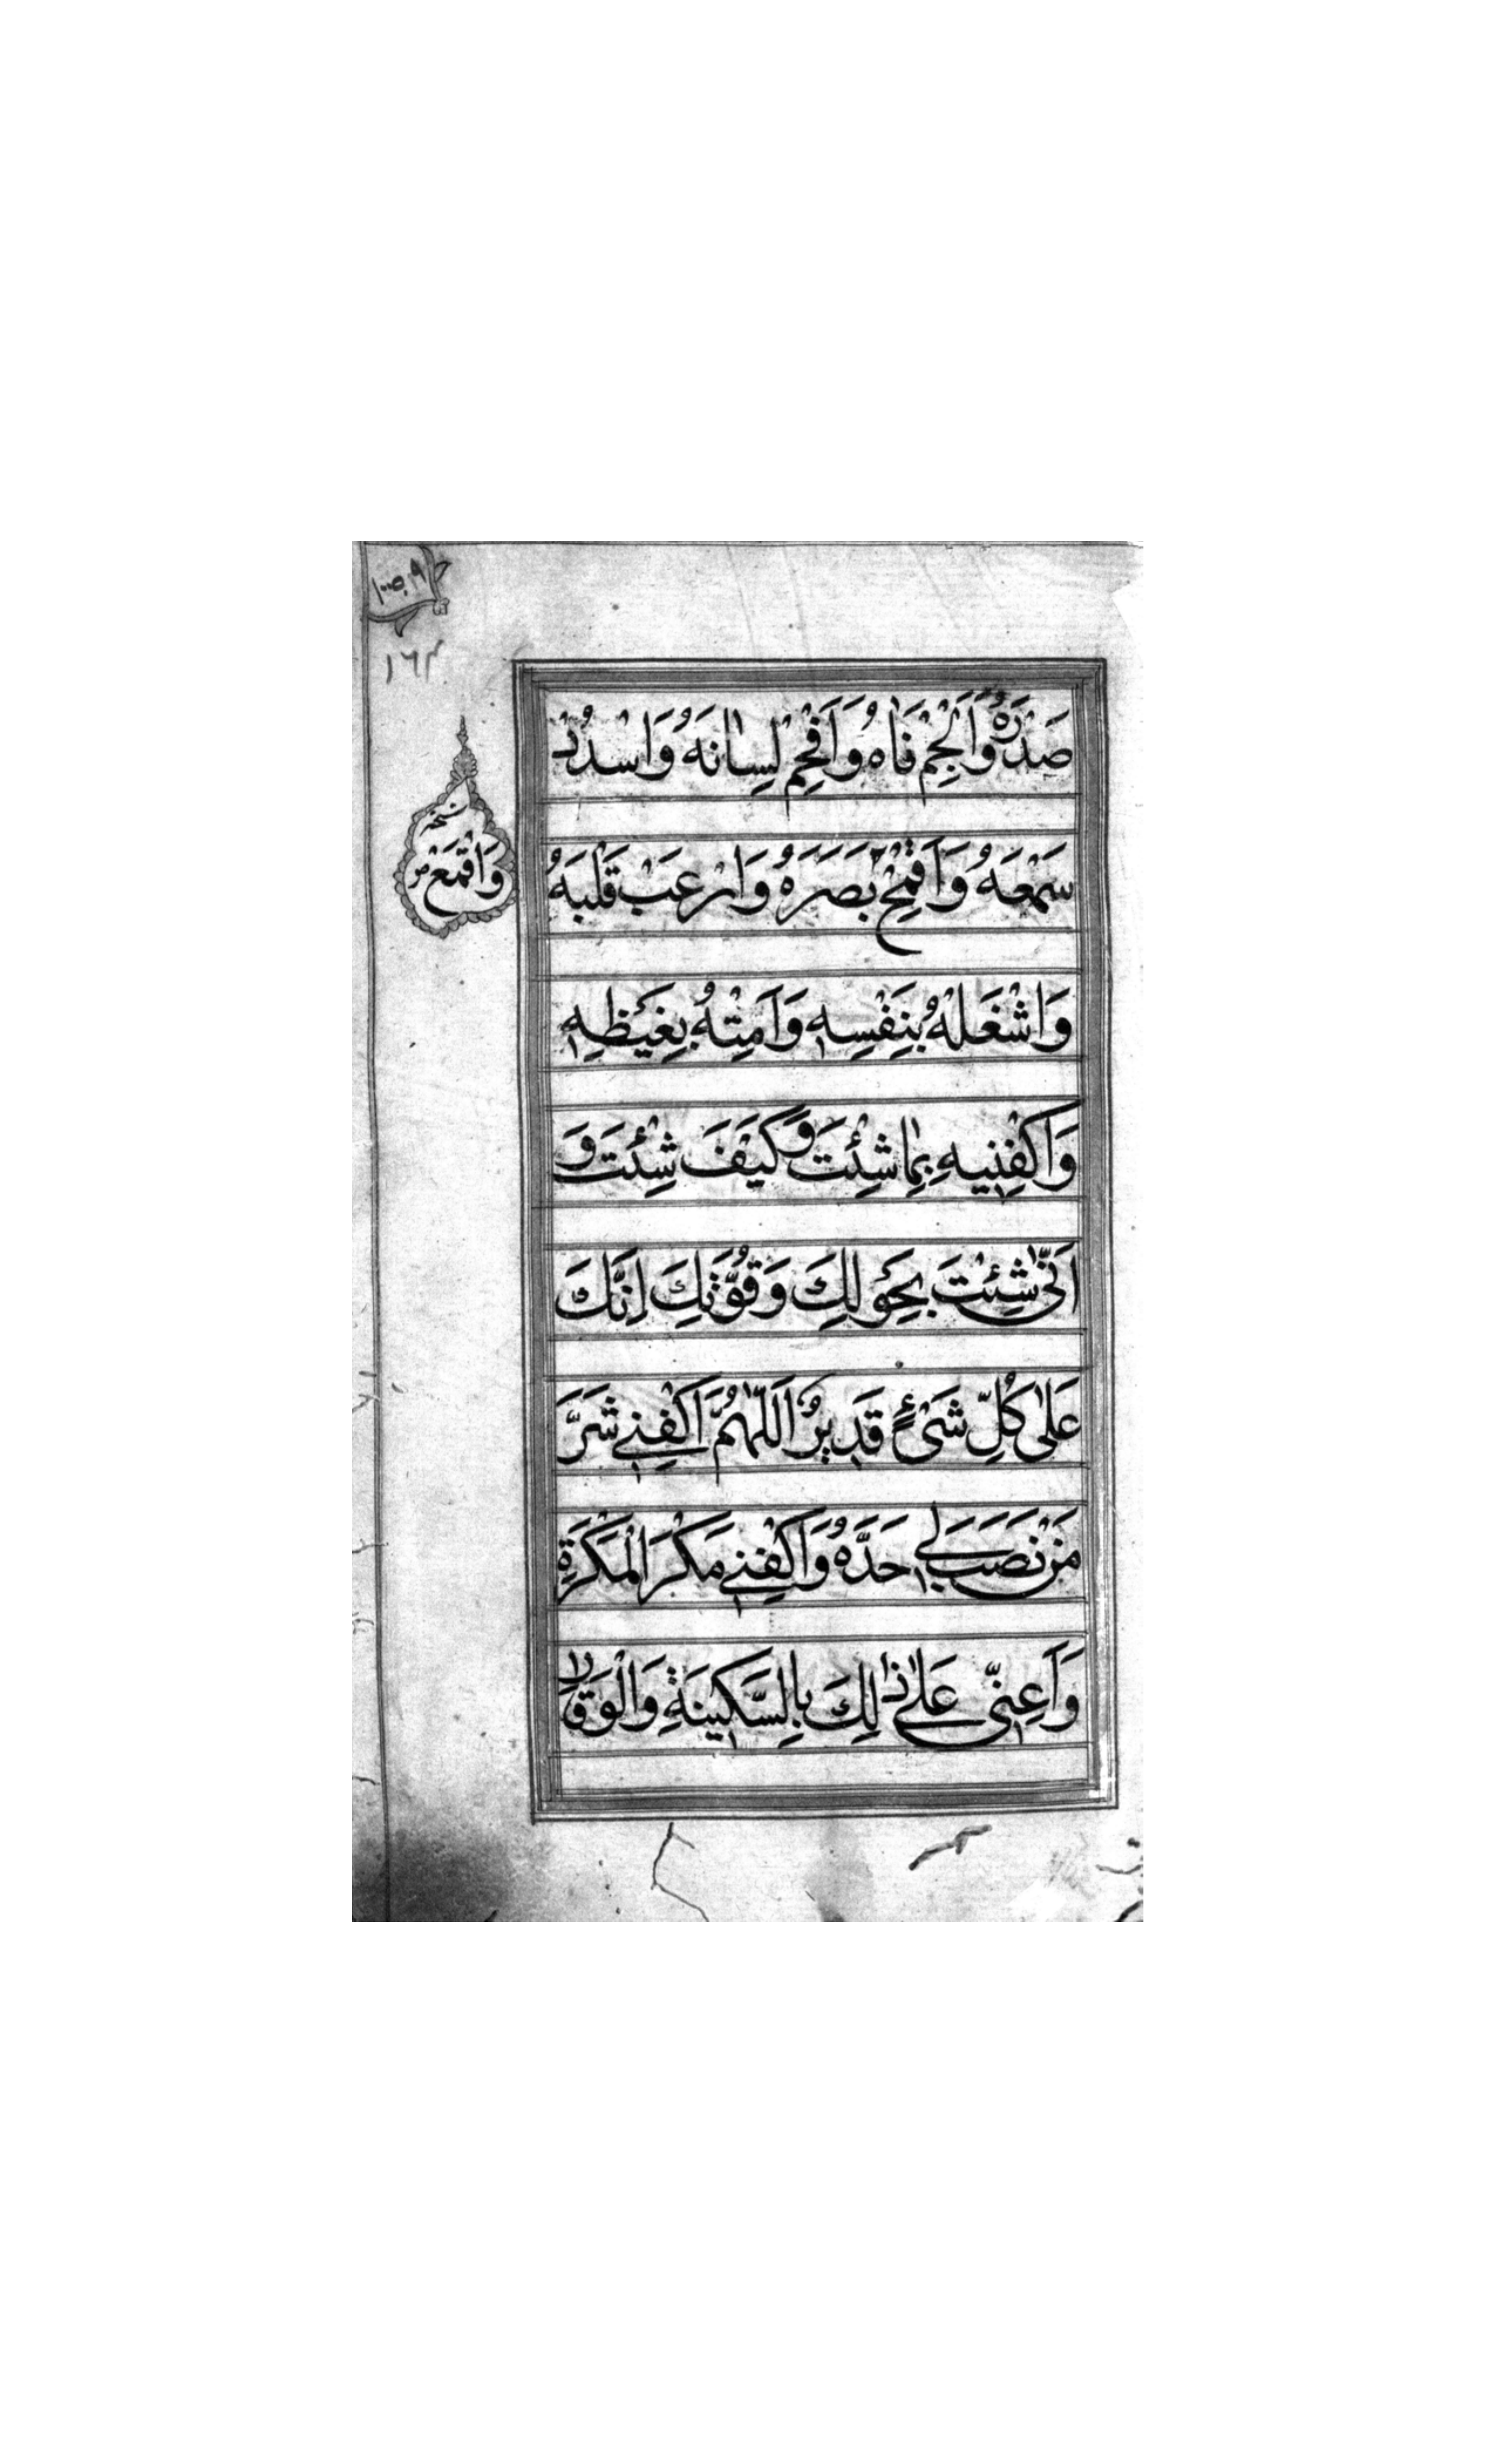 ١٦٢
صَدْرَهُ وَاَلْجِمْ فَاٰهُ وَاَفْحِمْ لِسٰانَهُ وَاسْدُدْ
سَمْعَهُ وَاَقْمِحْ بَصَرَهُ وَارْعَبْ قَلْبَهُ
نسخه
وَاقْمَعْ
وَاشْغَلْهُ بِنَفْسِهِ وَاَمِتْهُ بِغَيْظِهِ
وَاكْفِنِيهِ بِمٰا شِئْتَ وَكَيْفَ شِئْتَ وَ
اَنّٰى شِئْتَ بِحَوْلِكَ وَقُوَّتِكَ اِنَّكَ
عَلٰى كُلِّ شَىْءٍ قَدِيرٌ اَللّٰهُمَّ اكْفِنِى شَرَّ
مَنْ نَصَبَ لِى حَدَّهُ وَاكْفِنِى مَكْرَ الْمَكَرَةِ
وَاَعِنِّى عَلٰى ذٰلِكَ بِالسَّكِينَةِ وَالْوَقٰارِ